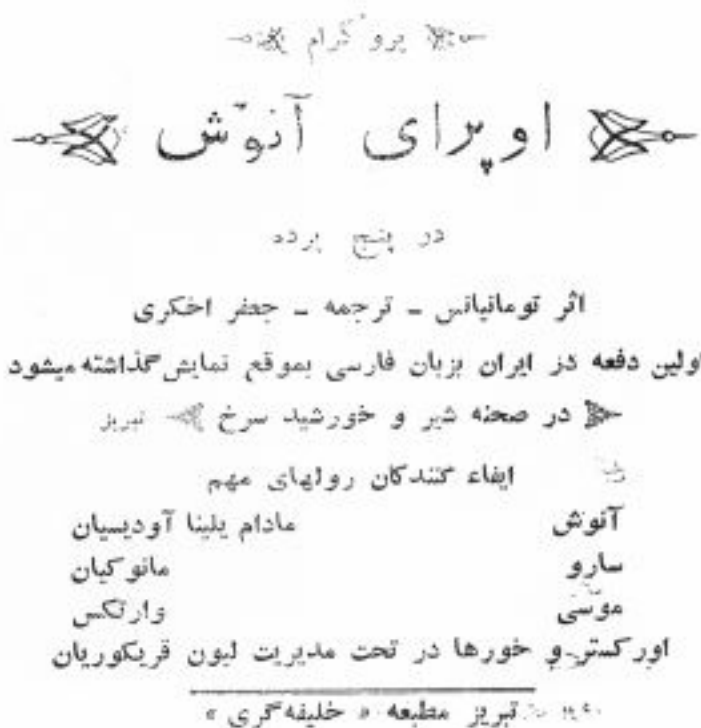 پروگرام
اوپرای آنوش
در پنج پرده
اثر تومانیانس ـ ترجمه ـ جعفر اخکری
اولین دفعه در ایران بزبان فارسی بموقع نمایش گذاشته میشود
در صحنه شیر و خورشید سرخ تبریز
ایفاء کنندکان رولهای مهم
آنوش مادام یلینا آودیسیان
سارو مانوکیان
موسی وارتکس
اورکستر و خورها در تحت مدیریت لیون قریکوریان
تبریز مطبعه « خلیفه گری »